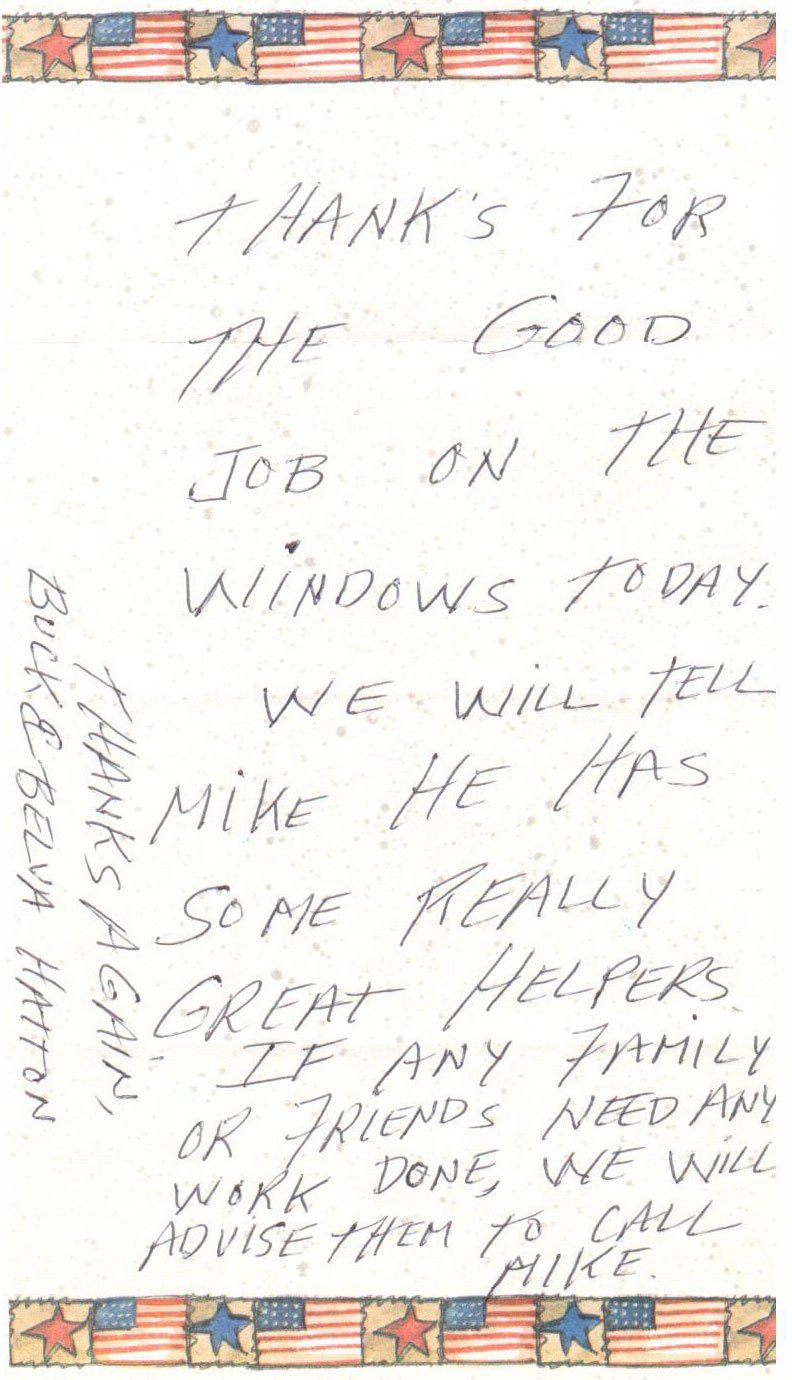 THANK'S FOR
THE GOOD
JOB ON THE
WINDOWS TODAY.
WE WILL TELL
MIKE HE HAS
SOME REALLY
GREAT HELPERS
IF ANY FAMILY
OR FRIENDS NEED ANY
WORK DONE, WE WILL
ADVISE THEM TO CALL
MIKE.
THANKS AGAIN,
BUCK & BELVA HATTON